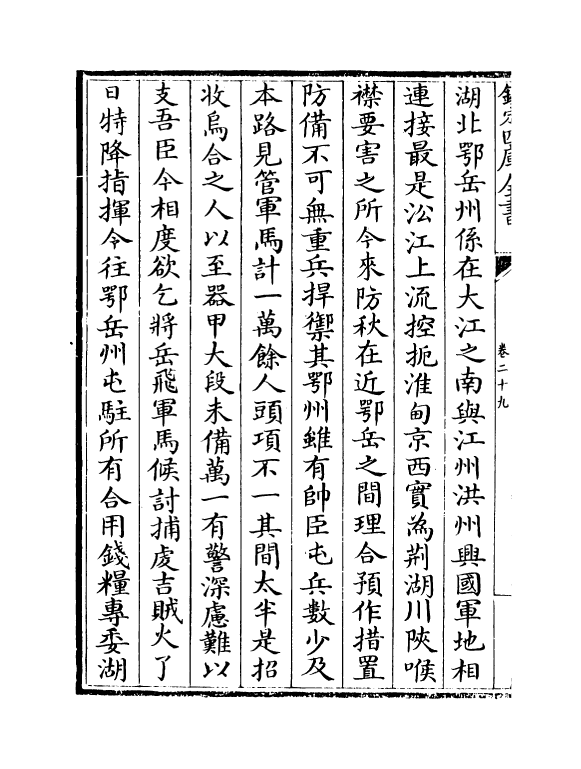 欽定四庫全書
卷二十九
湖北鄂岳州係在大江之南與江州洪州興國軍地相
連接最是㳂江上流控扼淮甸京西實為荆湖川陝喉
襟要害之所今來防秋在近鄂岳之間理合預作措置
防備不可無重兵捍禦其鄂州雖有帥臣屯兵數少及
本路見管軍馬計一萬餘人頭項不一其間太半是招
收烏合之人以至器甲大段未備萬一有警深慮難以
支吾臣今相度欲乞將岳飛軍馬候討捕虔吉賊火了
日特降指揮令往鄂岳州屯駐所有合用錢糧專委湖